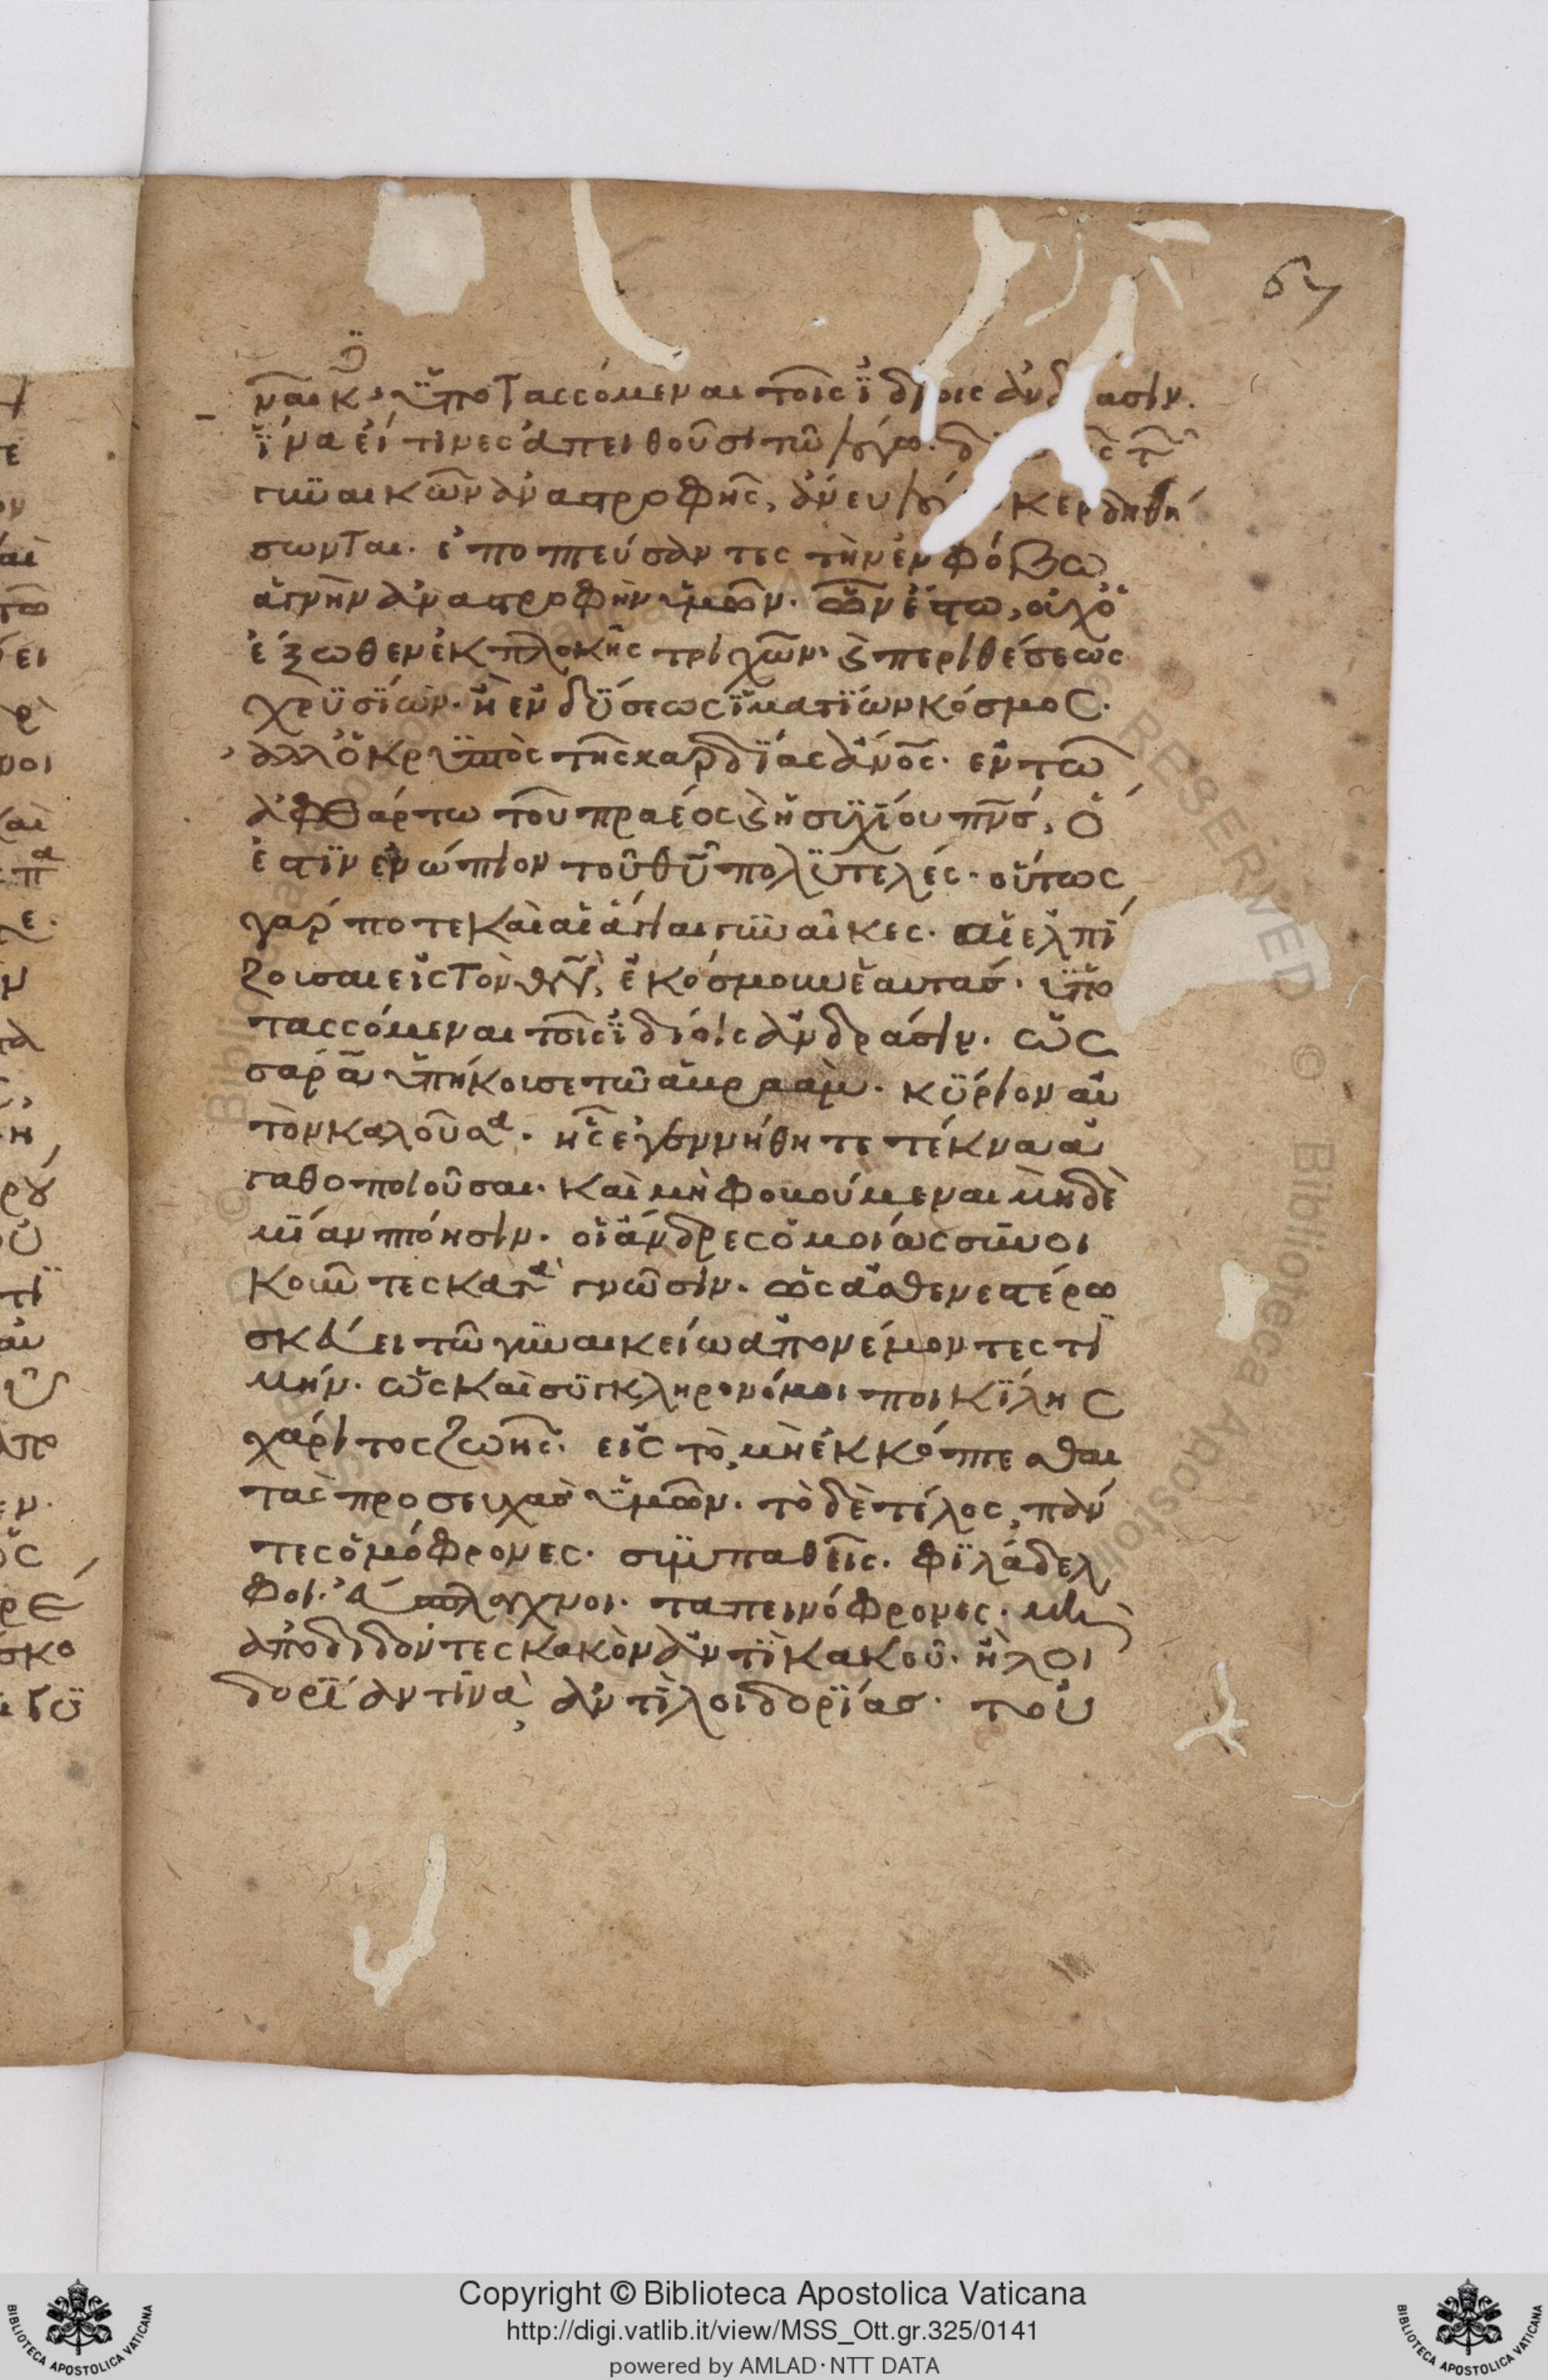 67
ναικ ὑποτασσόμεναι τοῖς ἰδίοις ἀνδράσιν.
ἵνα εἴ τινες ἀπειθοῦσι τῷ λόγω. τ
γυναικῶν ἀναστροφῆς, ἄνευ λό κερδηθή
σωνται. ἐποπτεύσαντες τὴν ἐν φόβω
ἁγνὴν ἀναστροφὴν ὑμῶν. ὧν ἔστω, οὐχ ὁ
ἔξωθεν ἐκ πλοκῆς τριχῶν. ϗ περιθέσεως
χρυσίων. ἢ ἐνδύσεως ἱματίων κόσμος.
ἀλλ ὁ κρυπτὸς τῆς καρδίας ἄνος. ἐν τῶ
ἀφθάρτω τοῦ πραέος ϗ ἡσυχίου πνσ, ὅ
ἐστιν ἐνώπιον τοῦ θυ πολυτελές. οὕτως
γάρ ποτε καὶ αἱ ἅγιαι γυναῖκες. αἱ ἐλπί
ζουσαι εἰς τὸν θν, ἐκόσμουν ἑαυτάς. ὑπο
τασσόμεναι τοῖς ἰδίοις ἀνδράσιν. ὡς
σάρα ὑπήκουσε τῶ ἀβραάμ. κύριον αὐ
τὸν καλοῦσα. ἧς ἐγεννήθητε τέκνα ἀ
γαθοποιοῦσαι. καὶ μὴ φοβούμεναι μηδε
μίαν πτόησιν. οἱ ἄνδρες ὁμοίως συνοι
κοῦντες κατὰ γνῶσιν. ὡς ἀσθενεστέρω
σκεύει τῶ γυναικείω ἀπονέμοντες τι
μήν. ὡς καὶ συγκληρονόμοι ποικίλης
χάριτος ζωῆς. εἰς τὸ, μὴ ἐκκόπτεσθαι
τὰς προσευχὰς ὑμῶν. τὸ δὲ τέλος, πάν
τες ὁμόφρονες. συμπαθεῖς. φιλάδελ
φοι. εὔσπλαγχνοι. ταπεινόφρονες. μὴ
ἀποδιδόντες κακὸν ἀντὶ κακοῦ. ἢ λοι
δορίαν τινὰ, ἀντὶ λοιδορίας. του
Copyright © Biblioteca Apostolica Vaticana
http://digi.vatlib.it/view/MSS_Ott.gr.325/0141
powered by AMLAD·NTT DATA